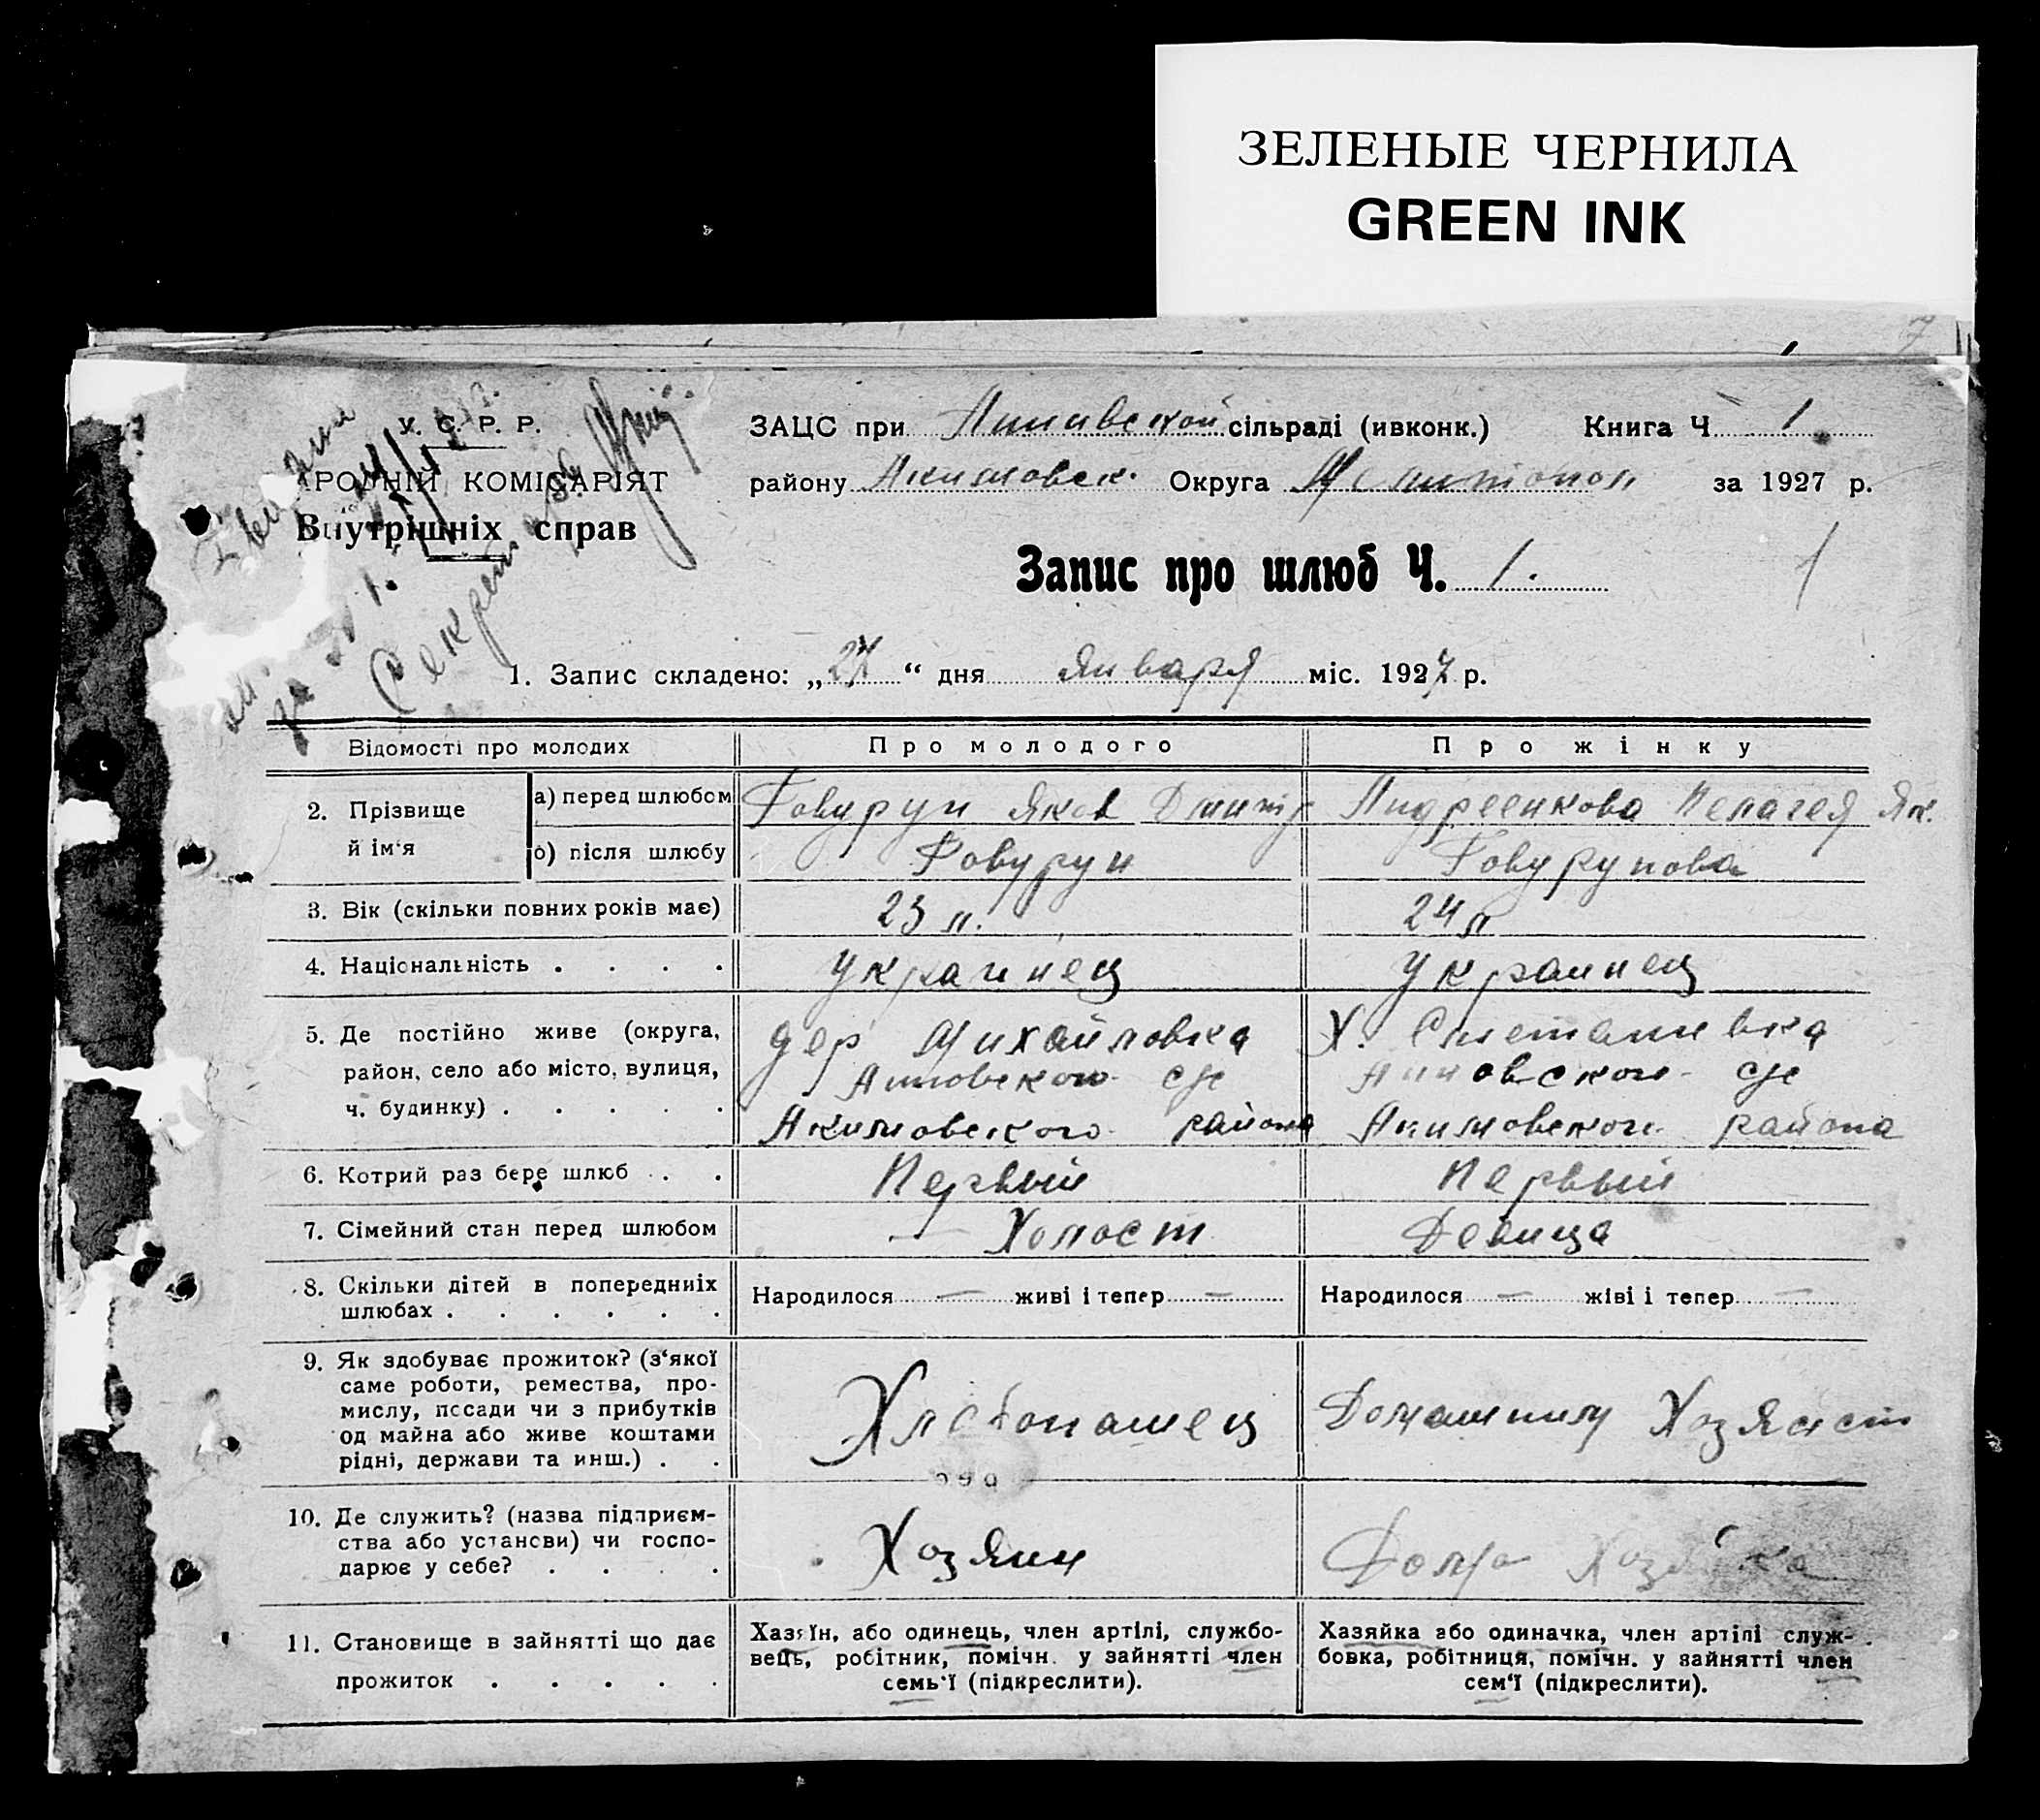 ЗЕЛЕНЫЕ ЧЕРНИЛА
GREEN INK
7
У. С. Р. Р.
РОДНІЙ КОМІСАРІЯТ
Внутрішніх справ
ЗАЦС при сільраді (ивконк.) Книга Ч 1
району Акимовск. Округа Мелитопол за 1927 р.
Запис про шлюб Ч. 1.
1
1. Запис складено: „27“ дня января міс. 1927 р.
Відомості про молодих Про молодого Про жінку
2. Прізвище й ім'я
а) перед шлюбом Говурун Яков Дмитр Андреенкова Пелагея Як.
б) після шлюбу Говурун Говурунова
3. Вік (скільки повних років має) 23 л. 24 л
4. Національність . . . . Украинец Украинец
5. Де постійно живе (округа, дер Михайловка Х.
район, село або місто, вулиця, с/с с/с
ч. будинку) . . . . . Акимовского района Акимовского района
6. Котрий раз бере шлюб . . Первый Первый
7. Сімейний стан перед шлюбом — Холост Девица
8. Скільки дітей в попередниіх Народилося — живі і тепер — Народилося — жіві і тепер —
шлюбах . . . . . .
9. Як здобуває прожиток? (з'якої
саме роботи, ремества, про-
мислу, посади чи з прибутків Хлебопашец Домашним Хозяйст
од майна або живе коштами
рідні, держави та инш.) . .
10. Де служить? (назва підприєм-
ства або установи) чи госпо- Хозяин Домо Хозяйка
дарює у себе? . . . .
11. Становище в зайнятті що дає Хазяїн, або одинець, член артілі, службо- Хазяйка або одиначка, член артілі служ-
вець, робітник, помічн. у зайнятті член бовка, робітниця, помічн. у зайнятті член
прожиток . . . . . семь'ї (підкреслити). сем'ї (підкреслити).